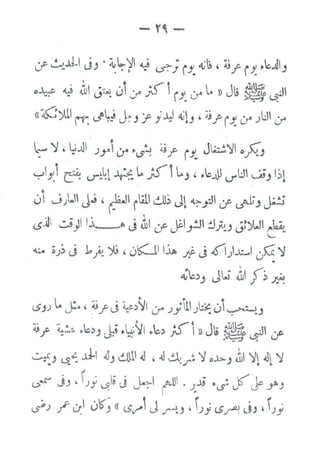 — ٢٩ —
والدعاء يوم عرفة ، فانه يوم ترجى فيه الإجابة . وفى الحديث عن
النبى ﷺ قال « ما من يوم أكثر من أن يعتق الله فيه عبيده
من النار من يوم عرفة ، وإنه ليدنو عز وجل فيباهى بهم الملائكة »
ويكره الاشتغال يوم عرفة بشىء من أمور الدنيا ، لا سيما
إذا وقف الناس للدعاء ، وما أكثر ما يجتهد إبليس بفتح أبواب
تشغل وتلهى عن التوجه إلى ذلك المقام العظيم ، فعلى العارف أن
يقطع العلائق ويترك الشواغل عن الله فى هـذا الوقت الذى
لا يمكن استدراكه فى غير هذا المكان ، فلا يفرط فى ذرة منه
بغير ذكر الله تعالى ودعائه
ويستحب أن يختار المأثور من الأدعية فى عرفة ، مثل ما روى
عن النبى ﷺ قال « أكثر دعاء الأنبياء قبلى ودعاء عشية عرفة
لا إله إلا الله وحده لا شريك له ، له الملك وله الحمد يحيى ويميت
وهو على كل شىء قدير . اللهم اجعل فى قلبى نوراً ، وفى سمعى
نوراً ، وفى بصرى نوراً ، ويسر لى أمرى » وكان ابن عمر رضى